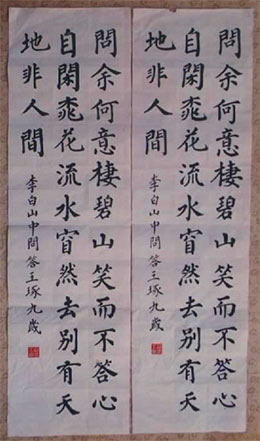 問余何意棲碧山笑而不答心
自閑桃花流水窅然去別有天
地非人間
李白山中問答王琢九歲
問余何意棲碧山笑而不答心
自閑桃花流水窅然去別有天
地非人間
李白山中問答王琢九歲